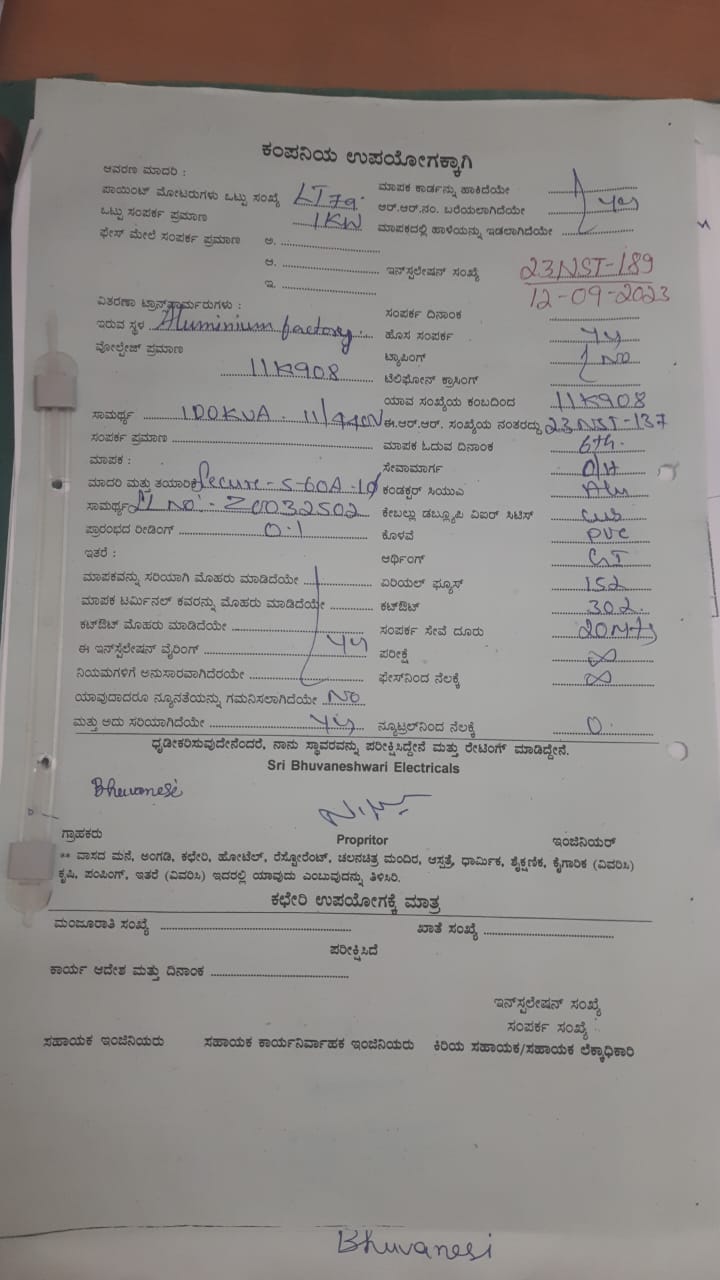 ಕಂಪನಿಯ ಉಪಯೋಗಕ್ಕಾಗಿ
ಆವರಣ ಮಾದರಿ :
ಪಾಯಿಂಟ್ ಮೋಟರುಗಳು ಒಟ್ಟು ಸಂಖ್ಯೆ LT79 ಮಾಪಕ ಕಾರ್ಡನ್ನು ಹಾಕಿದೆಯೇ
ಒಟ್ಟು ಸಂಪರ್ಕ ಪ್ರಮಾಣ 1KW ಆರ್.ಆರ್.ನಂ. ಬರೆಯಲಾಗಿದೆಯೇ Yes
ಫೇಸ್ ಮೇಲೆ ಸಂಪರ್ಕ ಪ್ರಮಾಣ ಅ. ಮಾಪಕದಲ್ಲಿ ಹಾಳೆಯನ್ನು ಇಡಲಾಗಿದೆಯೇ
ಆ. ಇನ್‌ಸ್ಟಲೇಷನ್ ಸಂಖ್ಯೆ 23NST-189
ಇ. 12-09-2023
ವಿತರಣಾ ಟ್ರಾನ್ಸ್‌ಫಾರ್ಮರುಗಳು : ಸಂಪರ್ಕ ದಿನಾಂಕ
ಇರುವ ಸ್ಥಳ Aluminium factory ಹೊಸ ಸಂಪರ್ಕ Yes
ವೋಲ್ಟೇಜ್ ಪ್ರಮಾಣ ಟ್ಯಾಪಿಂಗ್ No
11K908 ಟೆಲಿಫೋನ್ ಕ್ರಾಸಿಂಗ್
ಯಾವ ಸಂಖ್ಯೆಯ ಕಂಬದಿಂದ 11K908
ಸಾಮರ್ಥ್ಯ 100KVA. 11/440V ಈ.ಆರ್.ಆರ್. ಸಂಖ್ಯೆಯ ನಂತರದ್ದು 23NST-137
ಸಂಪರ್ಕ ಪ್ರಮಾಣ ಮಾಪಕ ಓದುವ ದಿನಾಂಕ 6th.
ಮಾಪಕ : ಸೇವಾಮಾರ್ಗ O/H
ಮಾದರಿ ಮತ್ತು ತಯಾರಿಕೆ Secure-5-60A-1Ø ಕಂಡಕ್ಟರ್ ಸಿಯುಎ Alu
ಸಾಮರ್ಥ್ಯ Sl No:- Z0032502 ಕೇಬಲ್ಲು ಡಬ್ಲ್ಯೂಪಿ ವಿಐಆರ್ ಸಿಟಿಸ್
ಪ್ರಾರಂಭದ ರೀಡಿಂಗ್ 0.1 ಕೊಳವೆ PVC
ಇತರೆ : ಆರ್ಥಿಂಗ್ GI
ಮಾಪಕವನ್ನು ಸರಿಯಾಗಿ ಮೊಹರು ಮಾಡಿದೆಯೇ ಏರಿಯಲ್ ಫ್ಯೂಸ್ 152
ಮಾಪಕ ಟರ್ಮಿನಲ್ ಕವರನ್ನು ಮೊಹರು ಮಾಡಿದೆಯೇ ಕಟ್‌ಔಟ್ 302.
ಕಟ್‌ಔಟ್ ಮೊಹರು ಮಾಡಿದೆಯೇ ಸಂಪರ್ಕ ಸೇವೆ ದೂರು 20Mts
ಈ ಇನ್‌ಸ್ಟಲೇಷನ್ ವೈರಿಂಗ್ Yes ಪರೀಕ್ಷೆ ∞
ನಿಯಮಗಳಿಗೆ ಅನುಸಾರವಾಗಿದೆರಯೇ ಫೇಸ್‌ನಿಂದ ನೆಲಕ್ಕೆ ∞
ಯಾವುದಾದರೂ ನ್ಯೂನತೆಯನ್ನು ಗಮನಿಸಲಾಗಿದೆಯೇ No
ಮತ್ತು ಅದು ಸರಿಯಾಗಿದೆಯೇ Yes ನ್ಯೂಟ್ರಲ್‌ನಿಂದ ನೆಲಕ್ಕೆ 0
ಧೃಡೀಕರಿಸುವುದೇನೆಂದರೆ, ನಾನು ಸ್ಥಾವರವನ್ನು ಪರೀಕ್ಷಿಸಿದ್ದೇನೆ ಮತ್ತು ರೇಟಿಂಗ್ ಮಾಡಿದ್ದೇನೆ.
Sri Bhuvaneshwari Electricals
Bhuvanesi
ಗ್ರಾಹಕರು Propritor ಇಂಜಿನಿಯರ್
** ವಾಸದ ಮನೆ, ಅಂಗಡಿ, ಕಛೇರಿ, ಹೋಟೆಲ್, ರೆಸ್ಟೋರೆಂಟ್, ಚಲನಚಿತ್ರ ಮಂದಿರ, ಆಸ್ಪತ್ರೆ, ಧಾರ್ಮಿಕ, ಶೈಕ್ಷಣಿಕ, ಕೈಗಾರಿಕ (ವಿವರಿಸಿ)
ಕೃಷಿ, ಪಂಪಿಂಗ್, ಇತರೆ (ವಿವರಿಸಿ) ಇದರಲ್ಲಿ ಯಾವುದು ಎಂಬುವುದನ್ನು ತಿಳಿಸಿರಿ.
ಕಛೇರಿ ಉಪಯೋಗಕ್ಕೆ ಮಾತ್ರ
ಮಂಜೂರಾತಿ ಸಂಖ್ಯೆ ಖಾತೆ ಸಂಖ್ಯೆ
ಪರೀಕ್ಷಿಸಿದೆ
ಕಾರ್ಯ ಆದೇಶ ಮತ್ತು ದಿನಾಂಕ
ಇನ್‌ಸ್ಟಲೇಷನ್ ಸಂಖ್ಯೆ
ಸಂಪರ್ಕ ಸಂಖ್ಯೆ
ಸಹಾಯಕ ಇಂಜಿನಿಯರು ಸಹಾಯಕ ಕಾರ್ಯನಿರ್ವಾಹಕ ಇಂಜಿನಿಯರು ಕಿರಿಯ ಸಹಾಯಕ/ಸಹಾಯಕ ಲೆಕ್ಕಾಧಿಕಾರಿ
Bhuvanesi